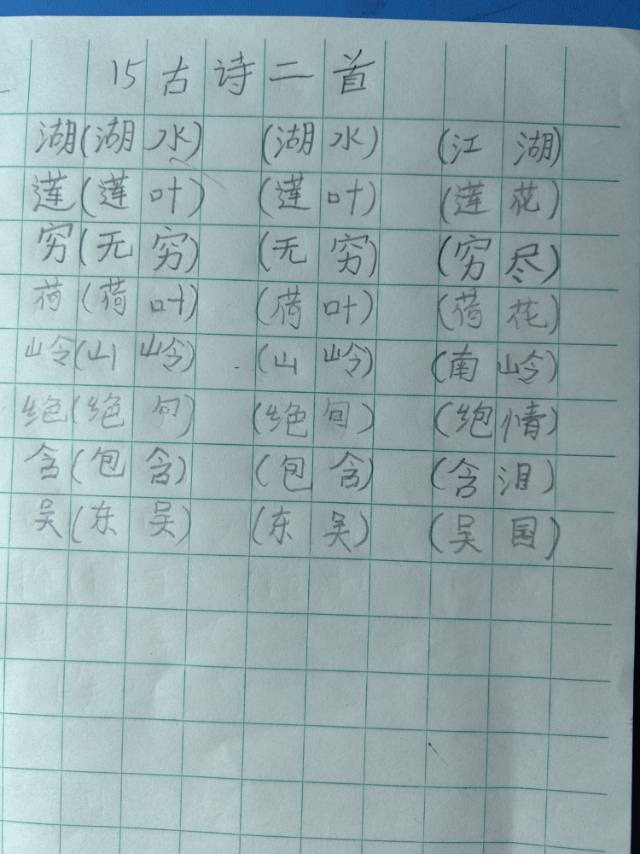 15 古诗二首
湖(湖水) (湖水) (江湖)
莲(莲叶) (莲叶) (莲花)
穷(无穷) (无穷) (穷尽)
荷(荷叶) (荷叶) (荷花)
岭(山岭) (山岭) (南岭)
绝(绝句) (绝句) (绝情)
含(包含) (包含) (含泪)
吴(东吴) (东吴) (吴国)